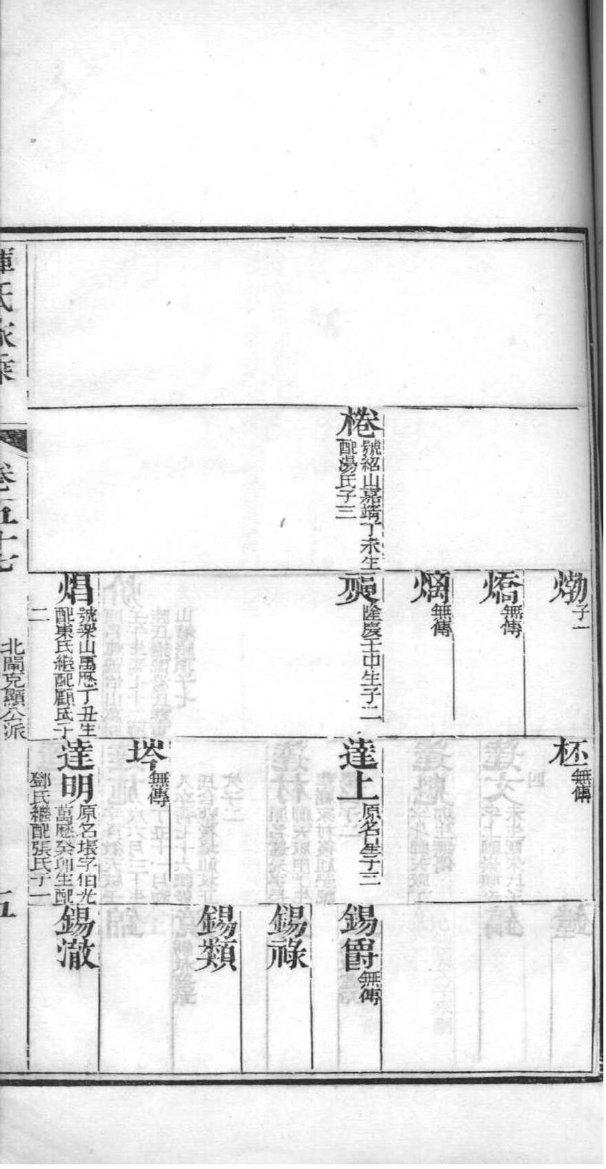 棬
號紹山嘉靖丁未生
配湯氏子三
燩
子一
燆
無傳
熵
無傳
㷼
隆慶壬申生子二
焻
號㷼山萬歷丁丑生
配東氏繼配顧氏子
二
柸
無傳
達上
原名垕子三
埁
無傳
達明
原名垠字伯光
萬歷癸卯生配
鄧氏繼配張氏子二
錫爵
無傳
錫祿
錫類
錫澈
惲氏家乘
卷五十七
北閘克顯公派
五